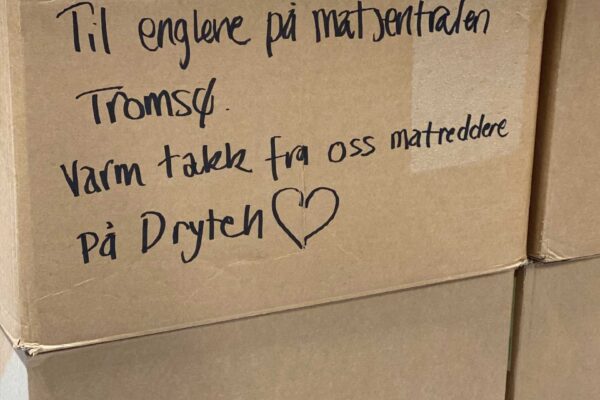 Til englene på matsentralen
Tromsø.
Varm takk fra oss matreddere
på Drytech ♡